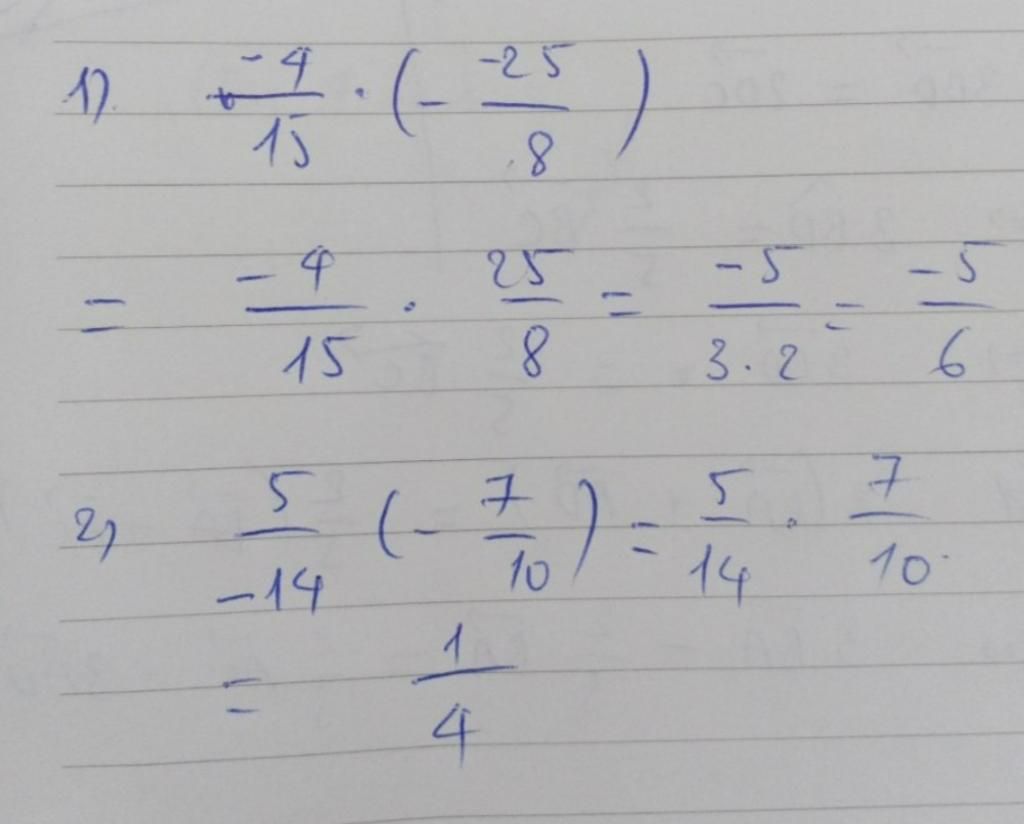 1) -4/15 . (- -25/8)
= -4/15 . 25/8 = -5/3.2 = -5/6
2) 5/-14 (- 7/10) = 5/14 . 7/10
= 1/4